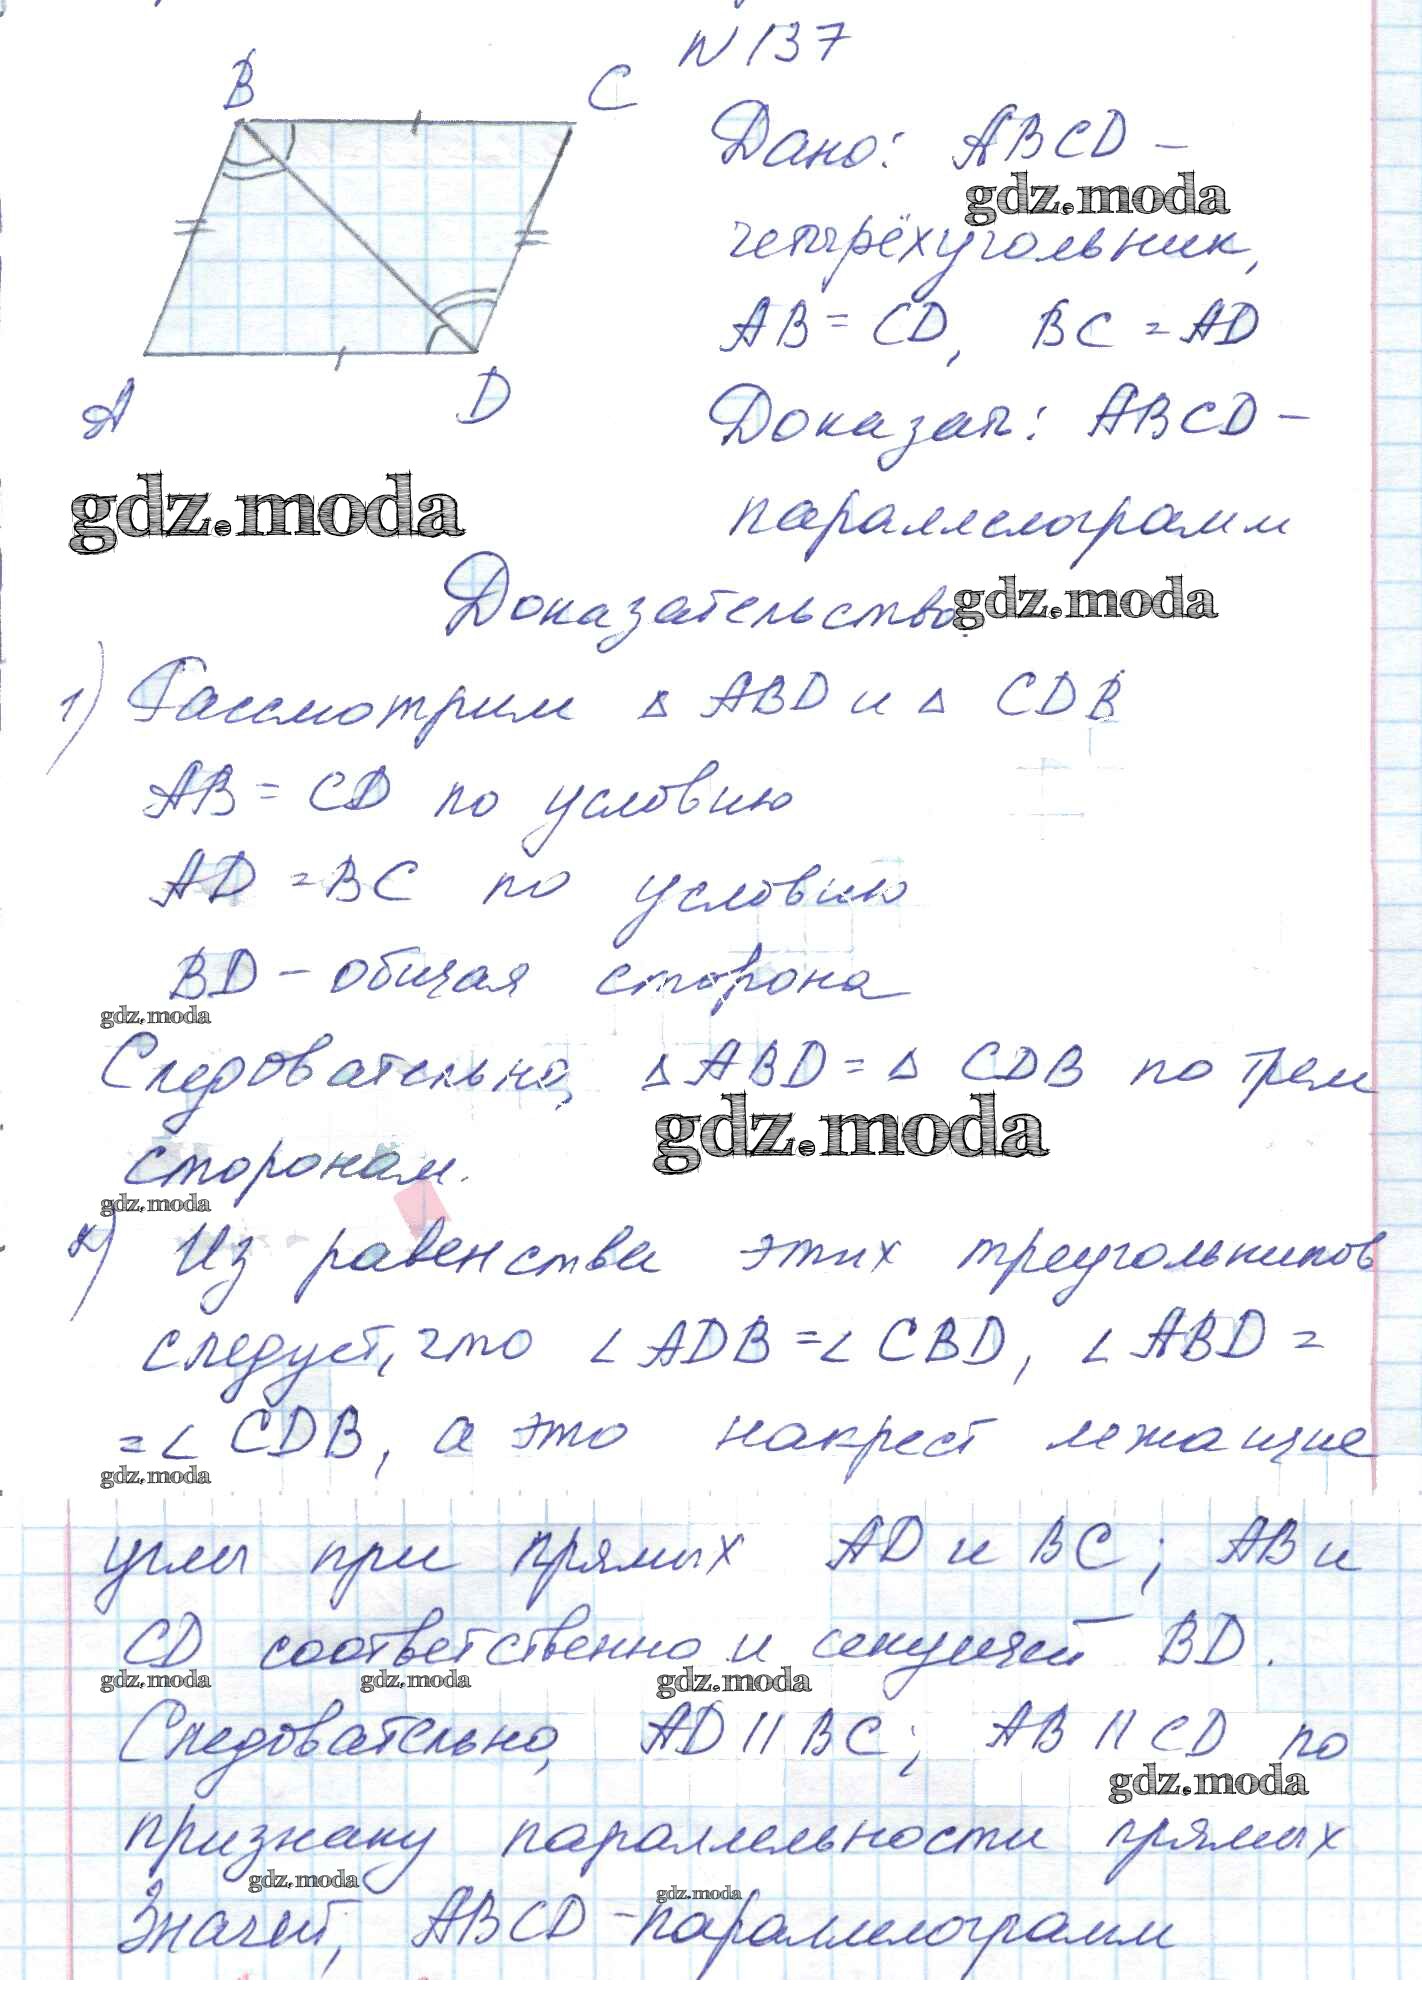 N 137
B
C
A
D
Дано: ABCD –
gdz.moda
четырёхугольник,
AB = CD, BC = AD
Доказат: ABCD –
gdz.moda
параллелограмм
Доказательство.
gdz.moda
1) Рассмотрим ▵ ABD и ▵ CDB
AB = CD по условию
AD = BC по условию
BD – общая сторона
gdz.moda
Следовательно, ▵ ABD = ▵ CDB по трем
gdz.moda
сторонам.
gdz.moda
2) Из равенства этих треугольников
следует, что ∠ ADB = ∠ CBD, ∠ ABD =
= ∠ CDB, а это накрест лежащие
gdz.moda
углы при прямых AD и BC; AB и
CD соответственно и секущей BD.
gdz.moda gdz.moda gdz.moda
Следовательно, AD || BC; AB || CD по
gdz.moda
признаку параллельности прямых
gdz.moda gdz.moda
Значит, ABCD – параллелограмм